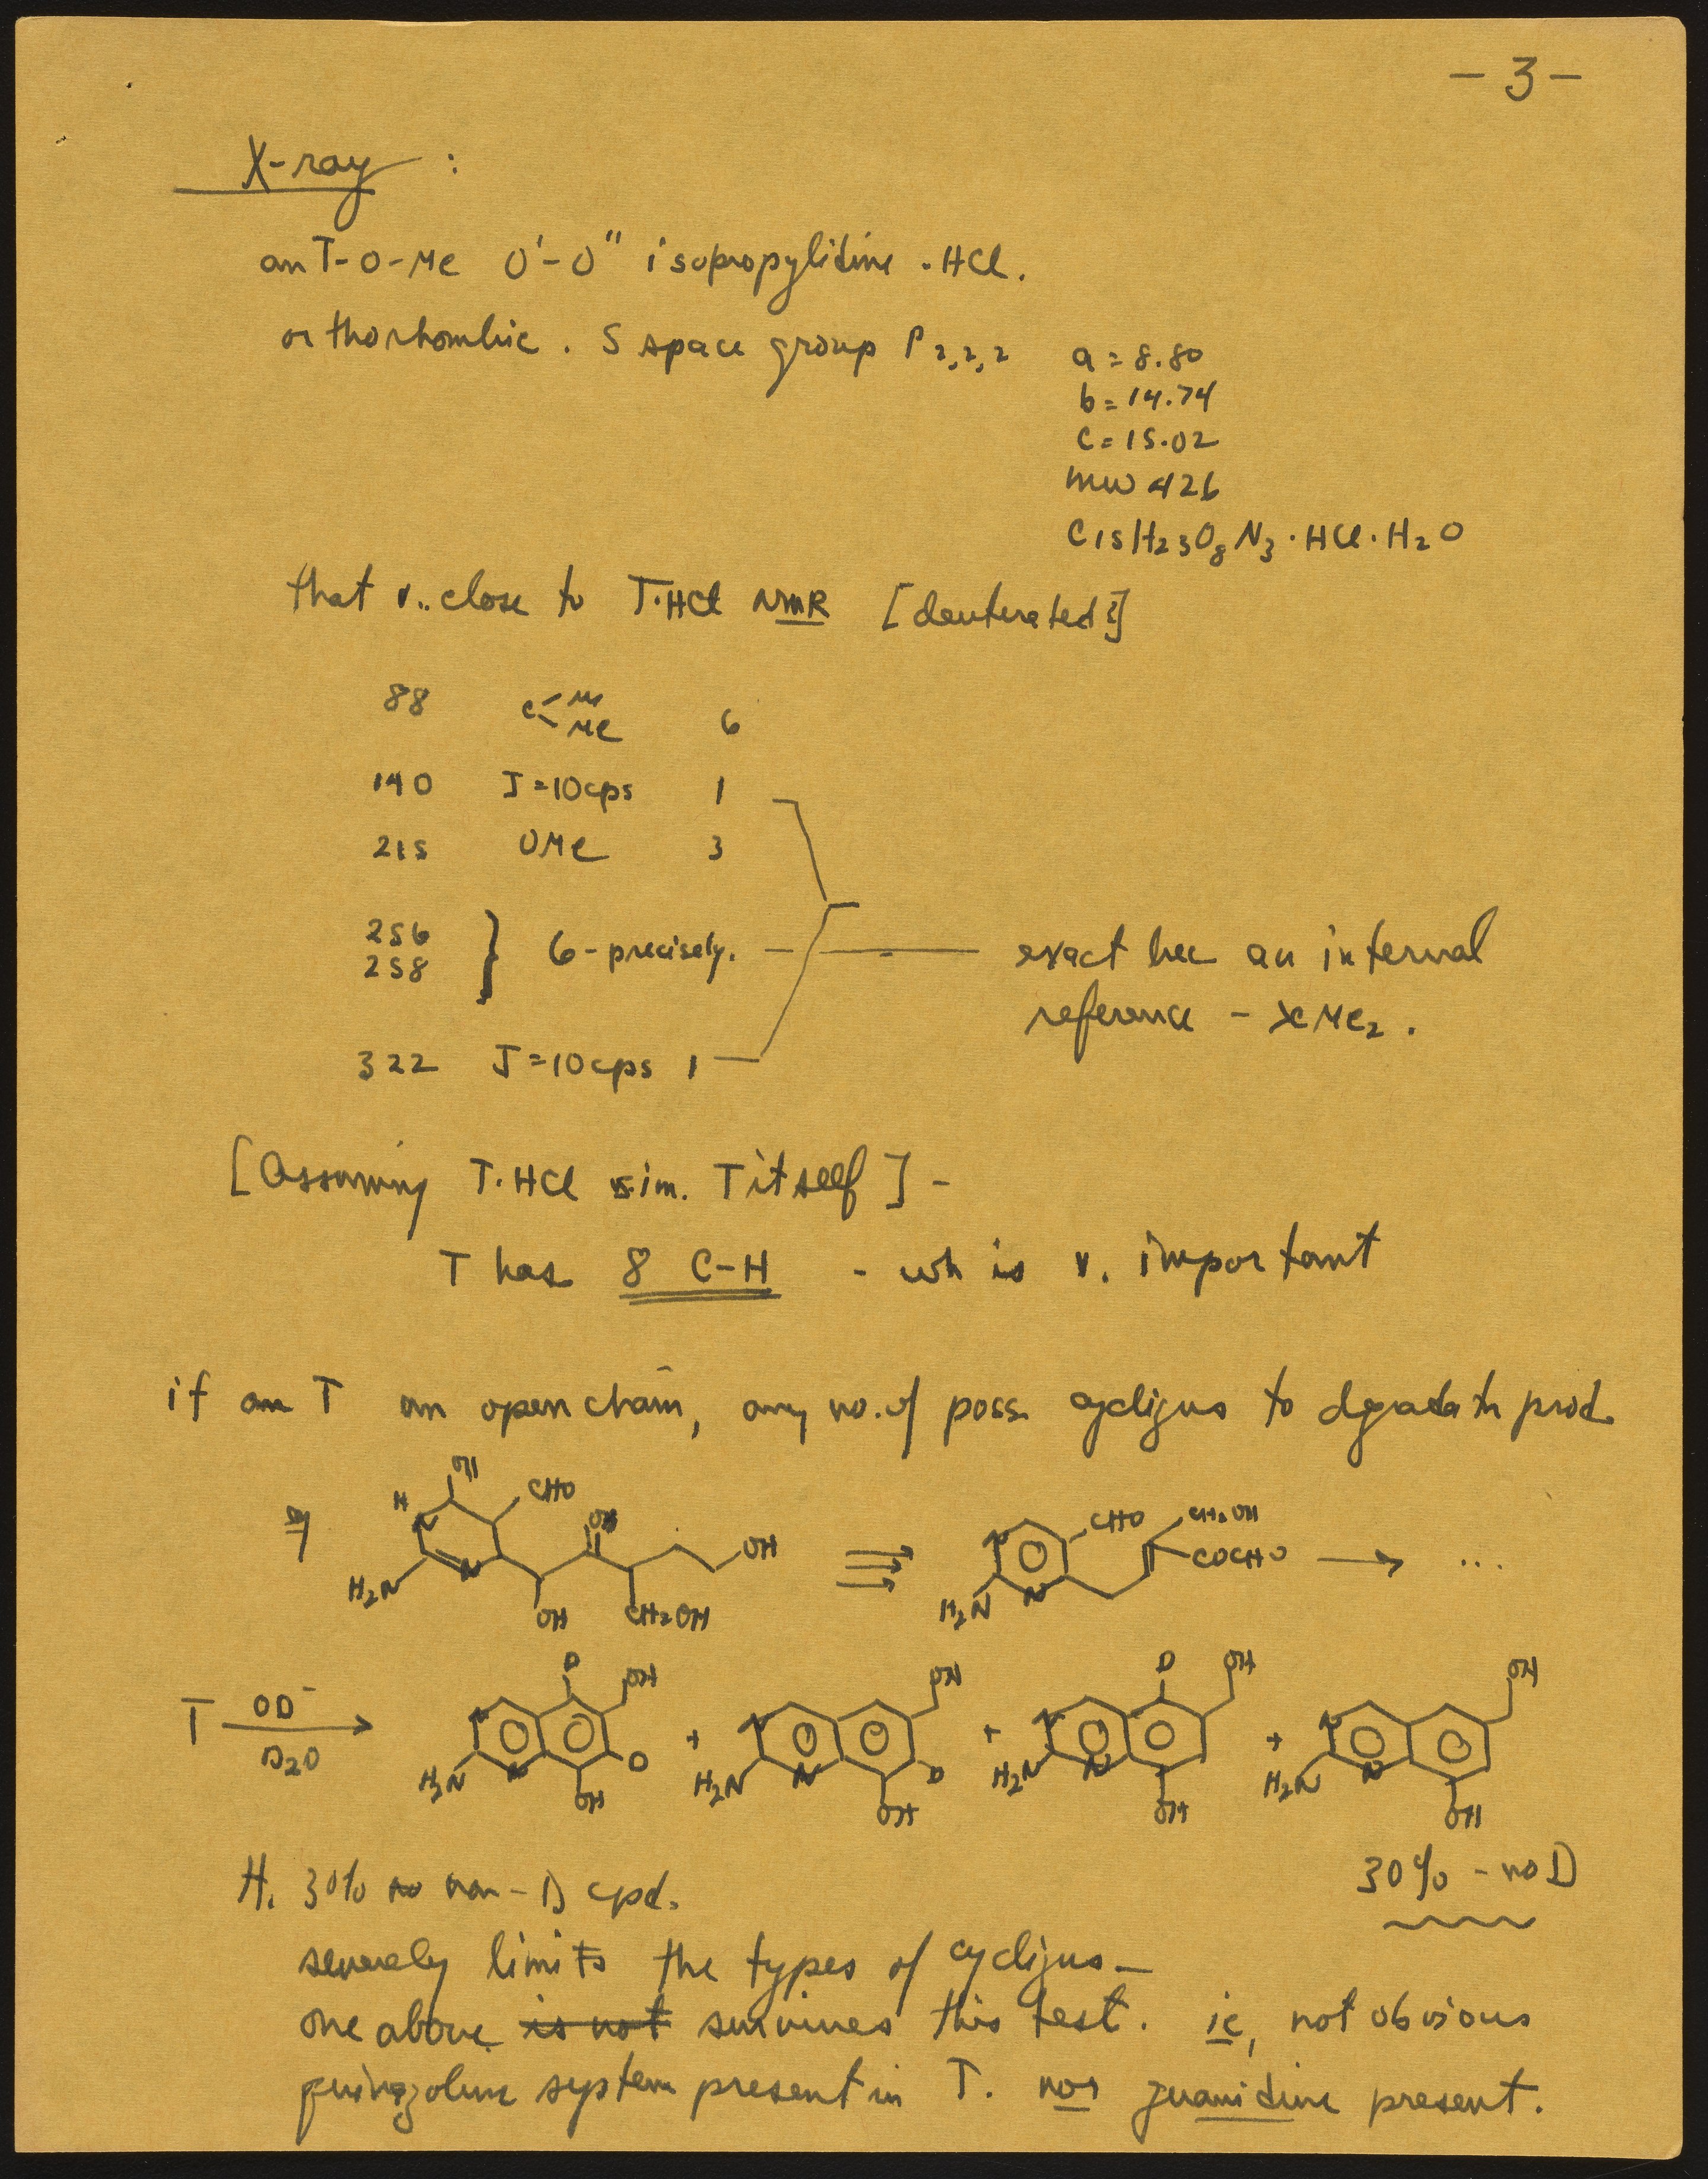 -3-
X-ray :
an T-O-Me O'-O" isopropylidine · HCl.
orthorhombic. S space group P2,2,2
a = 8.80
b = 14.74
c = 15.02
mw 426
C15H23O8N3·HCl·H2O
that v. close to T·HCl NMR [deuterated?]
88 C Me Me 6
140 J=10cps 1
215 OMe 3
256
258 } 6-precisely. — exact bec an internal
reference - >CMe2.
322 J=10cps 1
[Assuming T·HCl sim. T itself] -
T has 8 C-H - wh is v. important
if an T an open chain, any no. of poss. cycliz'ns to degradatn prod.
OH
H N CHO OH OH
H2N N OH CH2OH
N CHO CH2OH COCHO
H2N N → ...
T OD⁻ D2O →
D OH N H2N N D OH
+ OH N H2N N D OH
+ D OH N H2N N OH
+ OH N H2N N OH
30% - no D
H. 30% no non-D cpd.
severely limits the types of cycliz'ns —
one above is not survives this test. ie, not obvious
quinazoline system present in T. nor guanidine present.